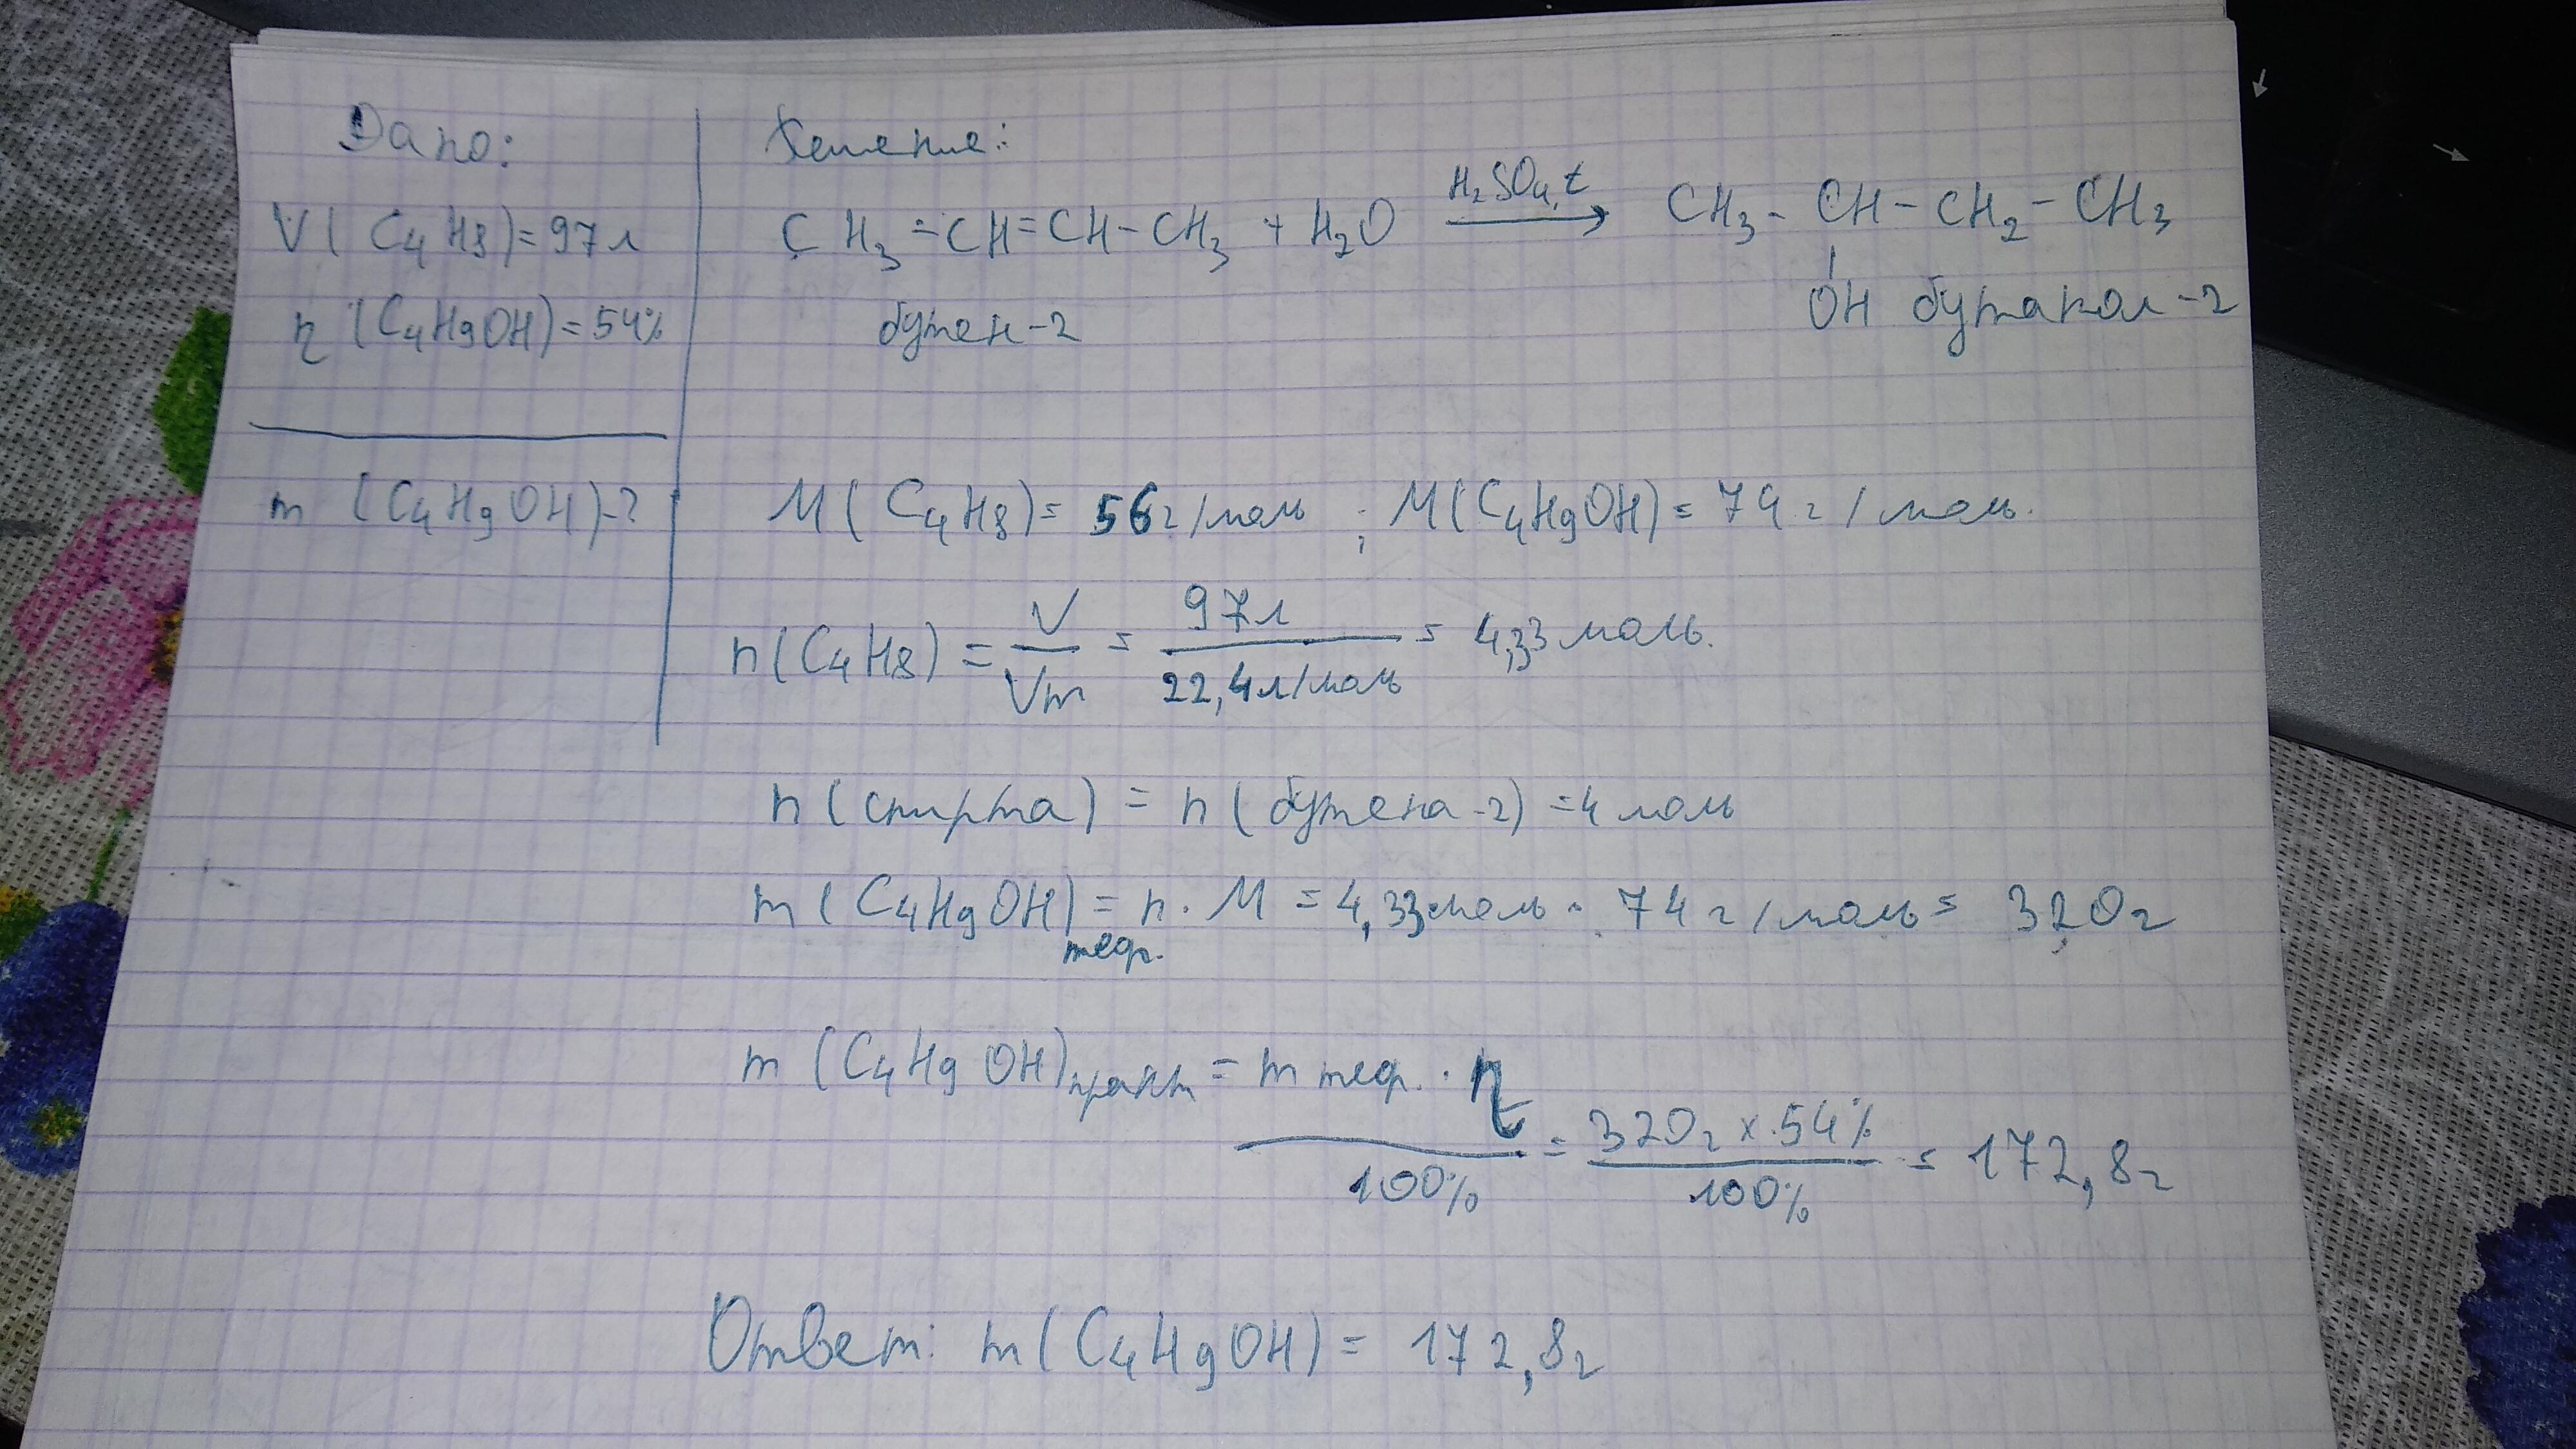 Дано:
V(C4H8)=97л
η(C4H9OH)=54%
m(C4H9OH)-?
Решение:
CH3=CH=CH-CH3 + H2O H2SO4, t → CH3-CH-CH2-CH3
бутен-2
OH бутанол-2
M(C4H8)= 56г/моль ; M(C4H9OH)= 74г/моль.
n(C4H8) = V/Vm = 97л/22,4л/моль = 4,33моль.
n(спирта) = n(бутена-2) =4моль
m(C4H9OH)теор. = n·M = 4,33моль · 74г/моль = 320г
m(C4H9OH)практ = mтеор. · η/100% = 320г x 54%/100% = 172,8г
Ответ: m(C4H9OH) = 172,8г